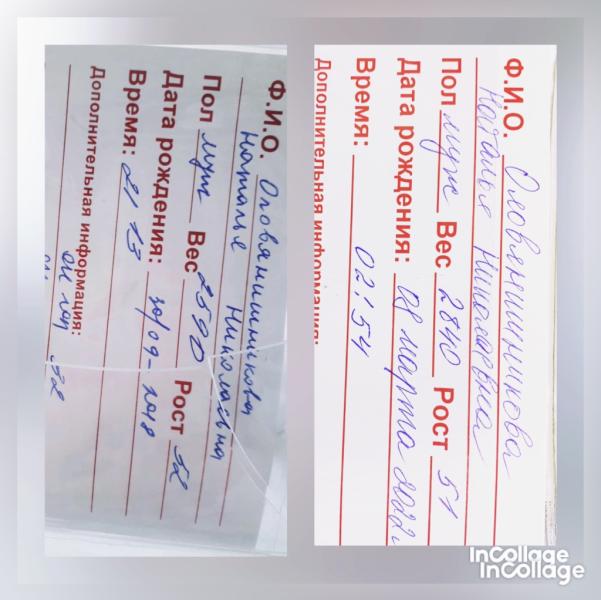 Ф.И.О. Оловянишникова
Наталье Николаевна
Пол муж Вес 2590 Рост 52
Дата рождения: 30/09-2018
Время: 21 13
Дополнительная информация:
Ф.И.О. Оловянишникова
Наталье Николаевна
Пол муж Вес 2840 Рост 51
Дата рождения: 08 марта 2022г
Время: 02:54
Дополнительная информация:
InCollage
InCollage